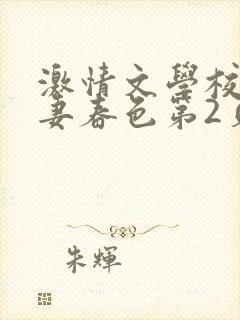 激情文學校
妻春色第2
朱輝